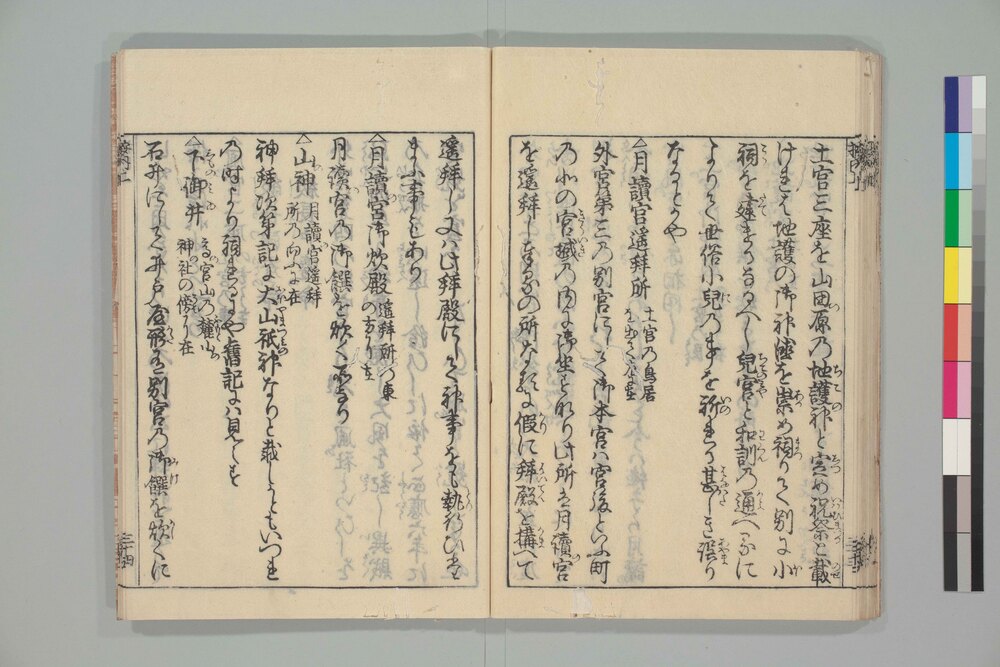 土宮三座を山田原の地護神と定め祝祭と載
けれは地護の御神慮を崇め祠りて別に小
祠を建
兒宮と和訓の通へるに
よりて世俗小兒の事を祈るハ甚しき誤り
なるとかや
△月讀宮遥拝所
土宮の鳥居
外宮第三の別宮にして御本宮ハ宮後といふ町
の北の宮域の内に御坐となり此所は月讀宮
を遥拝し
の所なるに假に拝殿を構へて
遥拝し又ハ此拝殿にて神事なとも執行ひ
まふ事もあり
△月讀宮御炊殿
遥拝所の東
の方に在
月讀宮の御饌を炊く所なり
△山神
月讀宮遥拝
所の向ふに在
神拝次第記に大山祇神なりと載しともいつれ
の時より祠れるにや舊記にハ見へす
△下御井
高宮山の麓山
神社の傍に在
石井にして井戸屋形有別宮の御饌を炊くに
三十三
三十四